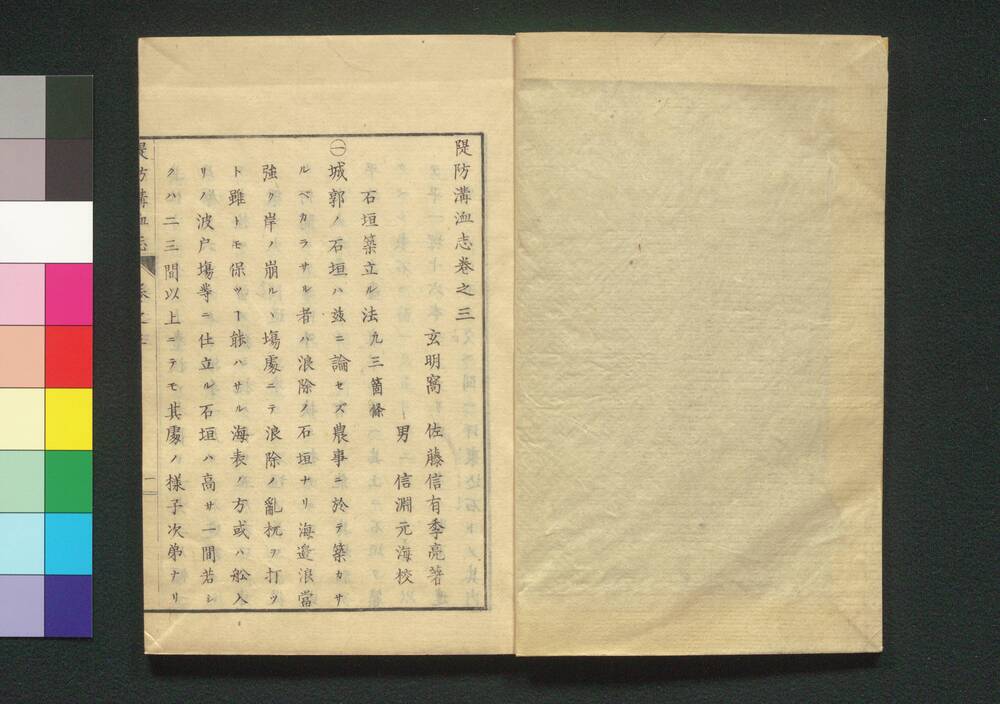 隄防溝洫志卷之三
玄明窩 佐藤信有季亮著
男 信淵元海校
石垣築立ル法 九三箇條
㊀城郭ノ石垣ハ玆ニ論セズ農事ニ於テ築カサ
ルベカラサル者ハ浪除ノ石垣ナリ海邉浪當
強ク岸ノ崩ル塲處ニテ浪除ノ亂杭ヲ打ツ
ト雖トモ保ツヿ能ハサル海表ノ方或ハ舩入
リノ波戸塲等ニ仕立ル石垣ハ高サ一間若シ
クハ二三間以上ニテモ其處ノ樣子次第ナリ
隄防溝洫志 卷之三 一